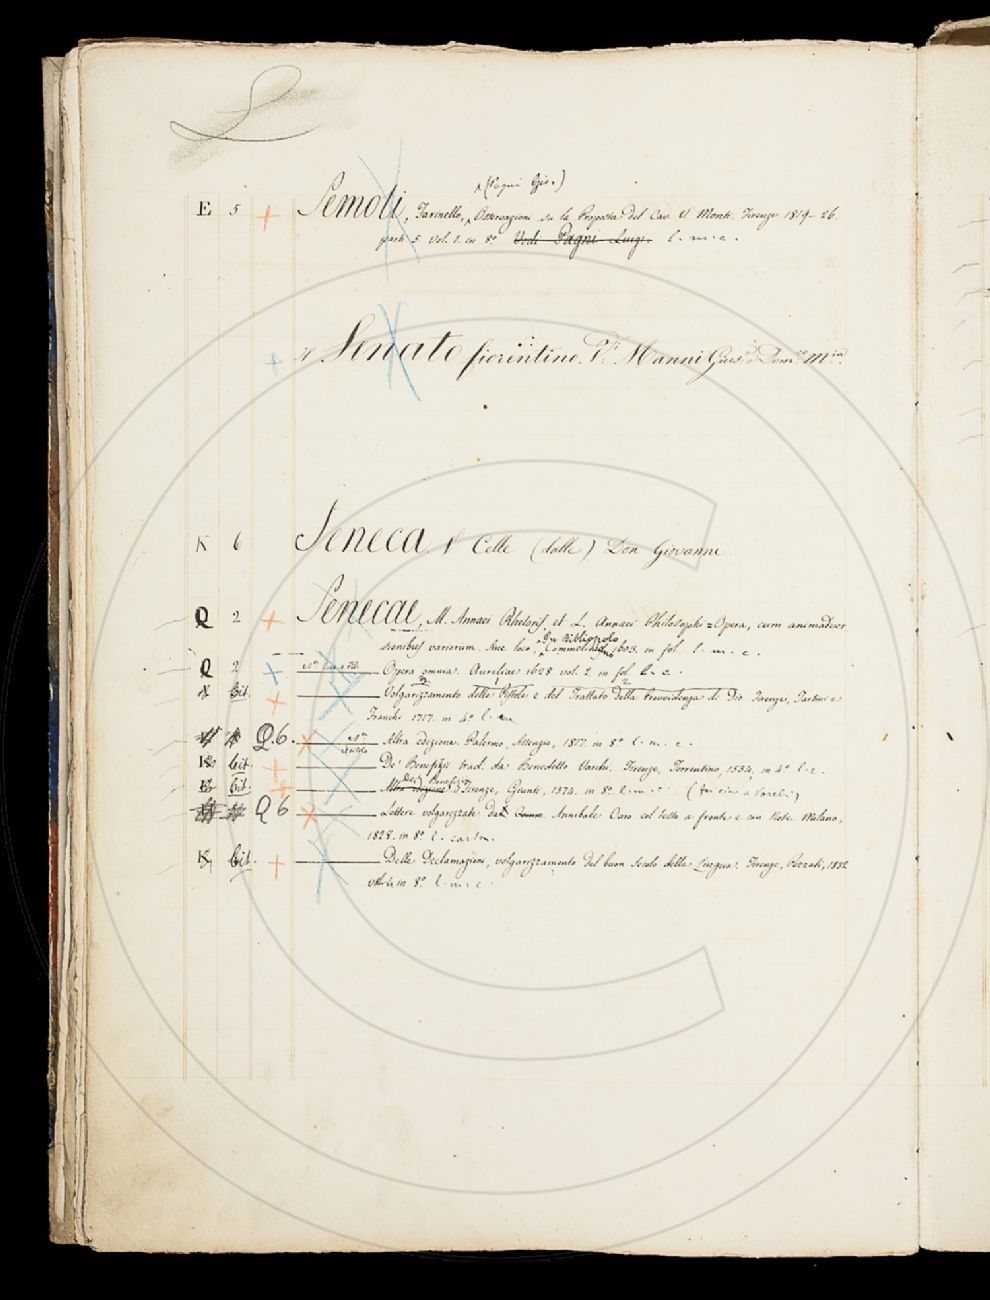 (Pagni Gio.)
E 5 + Semoli, Farinello, Osservazioni su la Proposta del Cav. V. Monti. Firenze 1819-26.
parti 5. vol. 1. in 8º Vedi Pagni Luigi. l. m. c.
+ Il Senato fiorentino. V. Manni Gius. Dom.co M.ia
K 6 Seneca. V. Celle (dalle) Don Giovanni
Q 2 + Senecae, M. Annaei Rhetoris, et L. Annaei Philosophi = Opera, cum animadver
sionibus variorum. Sine loco, Commeliniano 1603. in fol. l. m. c.
In Bibliopolo
Q 2 + Opera omnia. Aureliae 1628. vol. 2 in fol. l. c.
bit. + Volgarizzamento delle Pistole e del Trattato della Provvidenza di Dio. Firenze, Tartini e
Franchi 1717. in 4º l.
Q. 6. Altra edizione. Palermo, Assenzio, 1817. in 8º l. m. c.
K bit. + De' Benefizi trad. da Benedetto Varchi. Firenze, Torrentino, 1554, in 4º l. c.
bit. + Altra edizione Dei Benefizi Firenze, Giunti, 1574. in 8º l. m. c.
Q 6 Lettere volgarizzate dal Comm. Annibale Caro col testo a fronte e con Note. Milano,
1828. in 8º l. carton.
K bit. + Delle Declamazioni, volgarizzamento del buon Secolo della Lingua. Firenze, Pezzati, 1832
in 8º l. m. c.